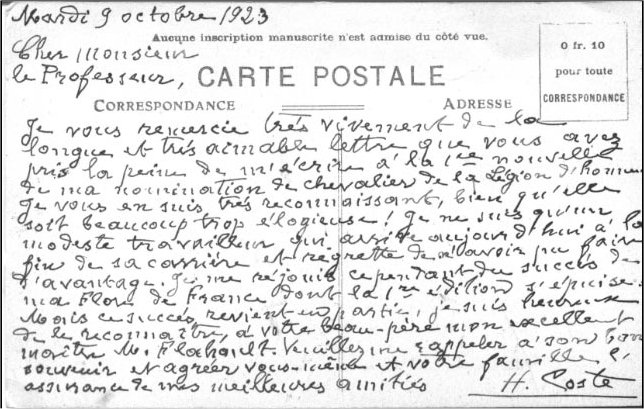 Mardi 9 octobre 1923
Aucune inscription manuscrite n'est admise du côté vue.
Cher Monsieur
le Professeur,
CARTE POSTALE
0 fr. 10
pour toute
CORRESPONDANCE
CORRESPONDANCE
ADRESSE
Je vous remercie très vivement de la
longue et très aimable lettre que vous avez
pris la peine de m'écrire à la 1re nouvelle
de ma nomination de chevalier de la Légion d'honneur
Je vous en suis très reconnaissant, bien qu'elle
soit beaucoup trop élogieuse! Je ne suis qu'un
modeste travailleur qui arrive aujourd'hui à la
fin de sa carrière et regrette de n'avoir pu faire
d'avantage. Je me réjouis cependant du succès de
ma Flore de France dont la 1re édition s'épuise.
Mais ce succès revient en partie, je suis heureux
de le reconnaître, à votre beau-père mon excellent
maître M. Flahault. Veuillez me rappeler à son bon
souvenir et agréer vous-même et votre famille l'
assurance de mes meilleures amitiés
H. Coste